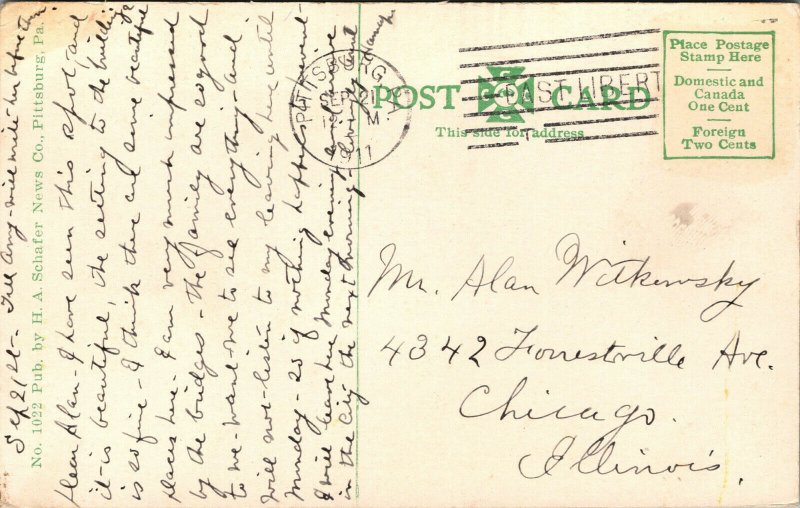 Sep 21st - Tell Amy - will write her before then
No. 1022 Pub. by H. A. Schafer News Co., Pittsburg, Pa.
Dear Alan - I have seen this spot and
it is beautiful, the setting to the building
is so fine - I think there are some beautiful
places here. I am very much impressed
by the bridges - The family are so good
to me - want me to see everything - and
will not listen to my leaving here until
Monday - so if nothing happens to prevent
I will leave here Monday evening and arrive
in the city the next morning. Love to
POST CARD
This side for address
PITTSBURG
SEP 21
1911
EAST LIBERT
Place Postage
Stamp Here
Domestic and
Canada
One Cent
Foreign
Two Cents
Mr. Alan Witkowsky
4342 Forrestville Ave.
Chicago.
Illinois.